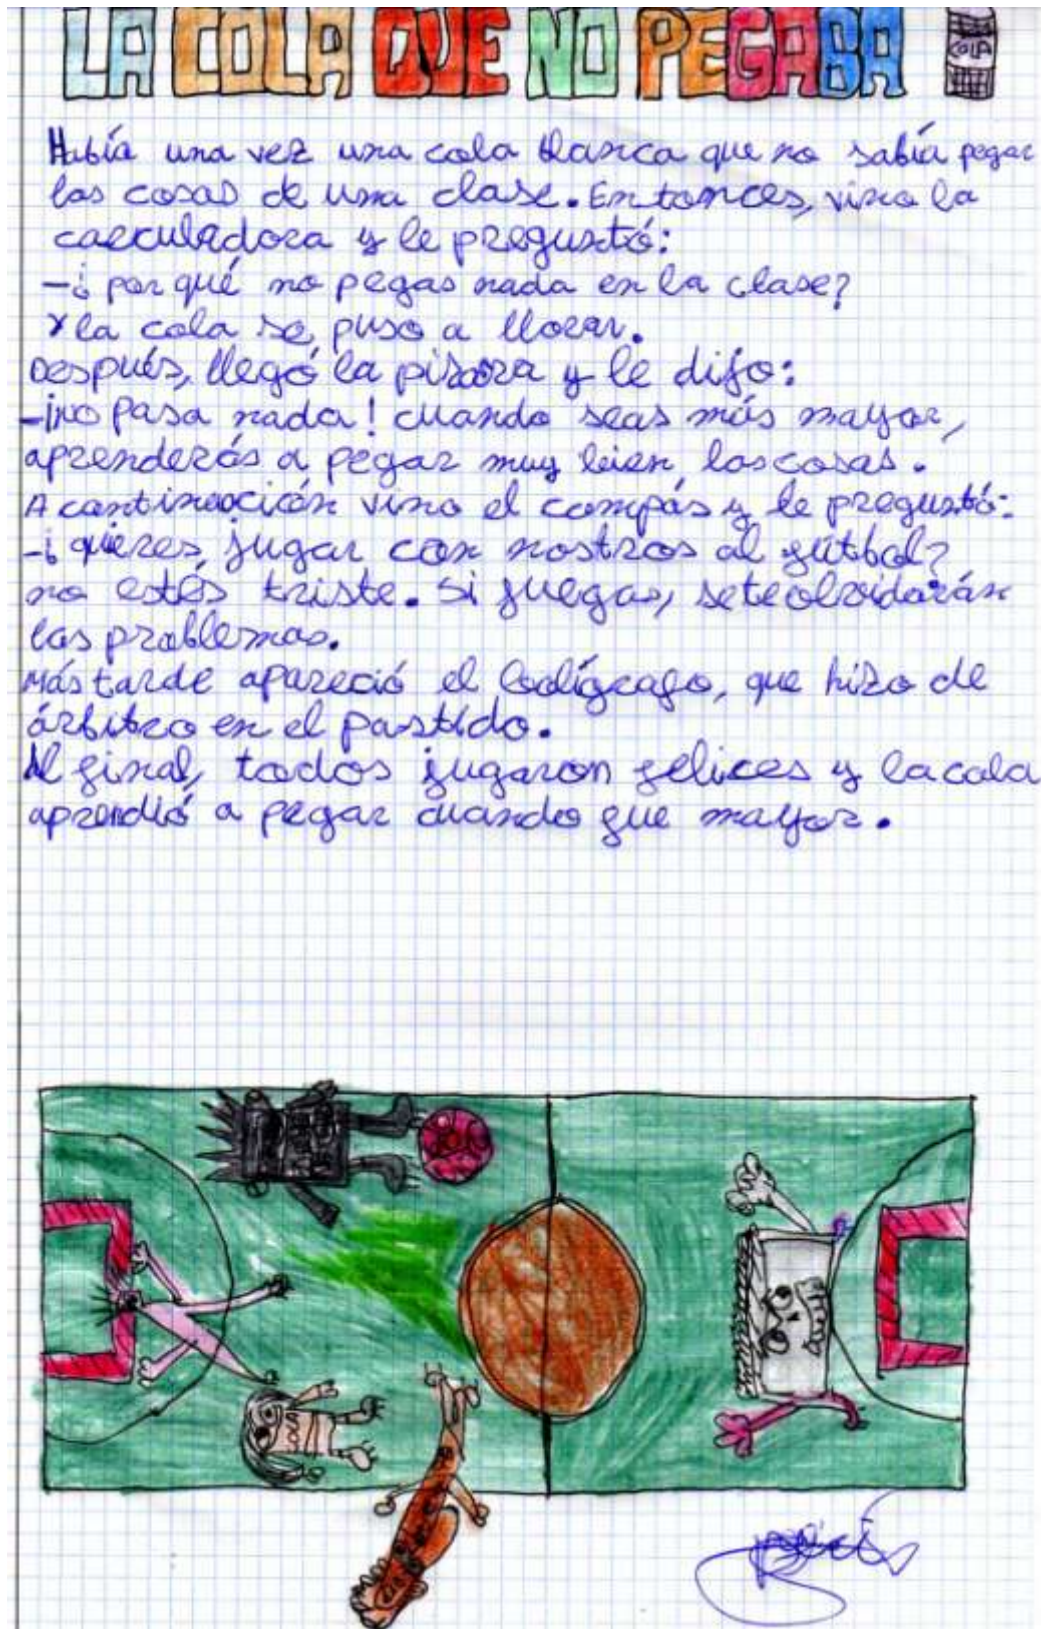 LA COLA QUE NO PEGABA
COLA
Había una vez una cola blanca que no sabía pegar
las cosas de una clase. Entonces, vino la
calculadora y le preguntó:
-¿por qué no pegas nada en la clase?
Y la cola se puso a llorar.
Después, llegó la pizarra y le dijo:
-¡No pasa nada! Cuando seas más mayor,
aprenderás a pegar muy bien las cosas.
A continuación vino el compás y le preguntó:
-¿quieres jugar con nostros al fútbol?
no estés triste. Si juegas, se te olvidarán
los problemas.
Más tarde apareció el bolígrafo, que hizo de
árbitro en el partido.
Al final, todos jugaron felices y la cola
aprendió a pegar cuando fue mayor.
COLA